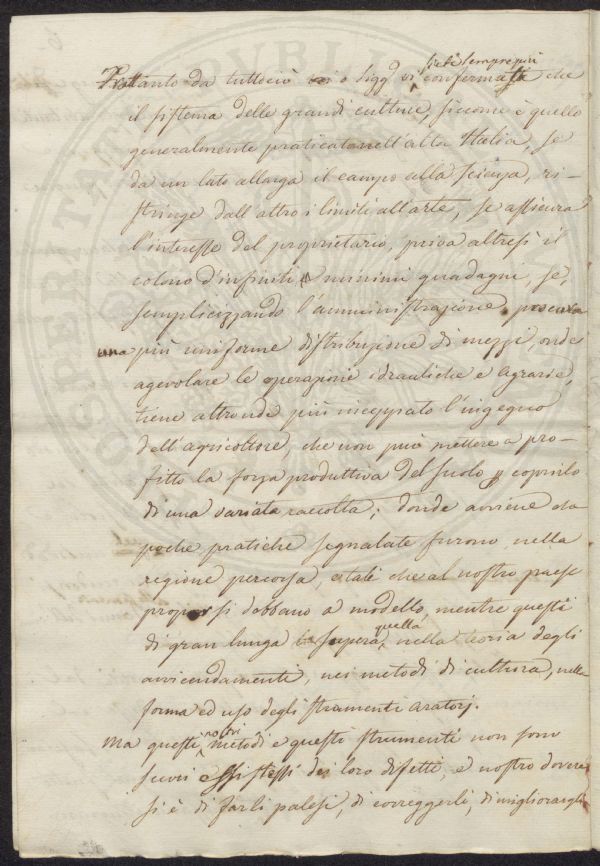 siete sempre più
Frattanto da tuttociò o Sigg. vi confermate che
il sistema delle grandi culture, siccome è quello
generalmente praticato nell'alta Italia, se
da un lato allarga il campo alla scienza, ri-
stringe dall'altro i limiti all'arte, se assicura
l'interesse del proprietario, priva altresì il
colono d'infiniti minimi guadagni, se,
semplicizzando l'amministrazione, procura
una più uniforme distribuzione di mezzi, onde
agevolare le operazioni idrauliche e agrarie,
tiene altronde più inceppato l'ingegno
dell'agricoltore, che non può mettere a pro-
fitto la forza produttiva del suolo p coprirlo
di una variata raccolta; donde avviene che
poche pratiche segnalate furono nella
regione percorsa, e tali che al nostro paese
proporsi debbano a modello, mentre questi
quella
di gran lunga supera, nella teoria degli
avvicendamenti, nei metodi di cultura, nella
forma ed uso degli strumenti aratorj.
nostri
Ma questi metodi e questi strumenti non sono
scevri essi stessi dei loro difetti, e nostro dovere
si è di farli palesi, di correggerli, di migliorargli
PROSPERITATI PUBLICAE